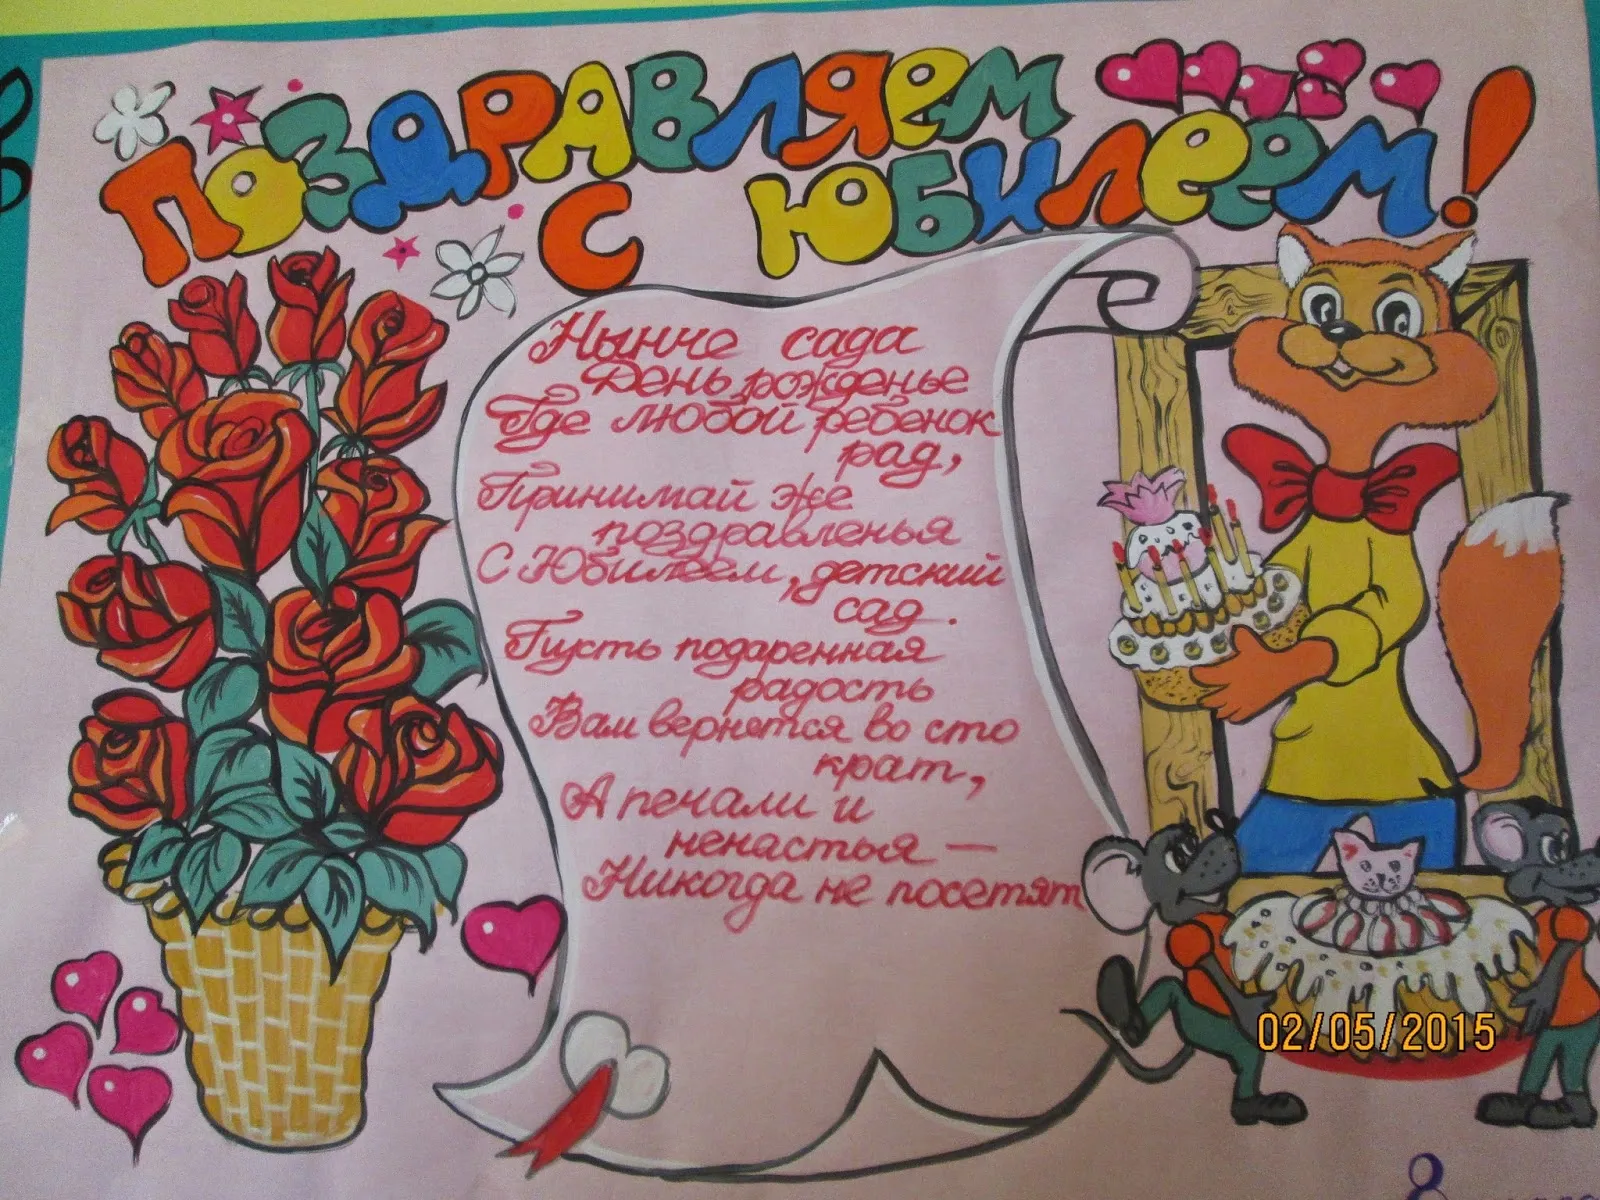 Поздравляем
с юбилеем!
Нынче сада
День рожденье
Где любой ребенок
рад,
Принимай же
поздравленья
С Юбилеем, детский
сад.
Пусть подаренная
радость
Вам вернется во сто
крат,
А печали и
ненастья —
Никогда не посетят
02/05/2015
8